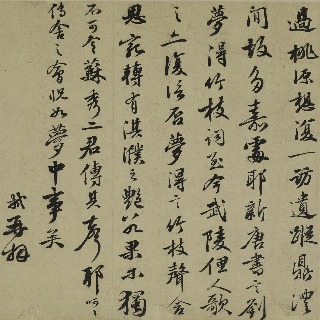 過桃源想復一訪遺蹤鼎澧
間故多嘉處耶新唐書言劉
夢得竹枝詞至今武陵俚人歌
之亦復信否夢得之竹枝聲含
思宛轉有淇濮之艷若果爾獨
不可令蘇秀二君傳其音耶呵呵
傳舍之會怳如夢中事矣
軾再拜